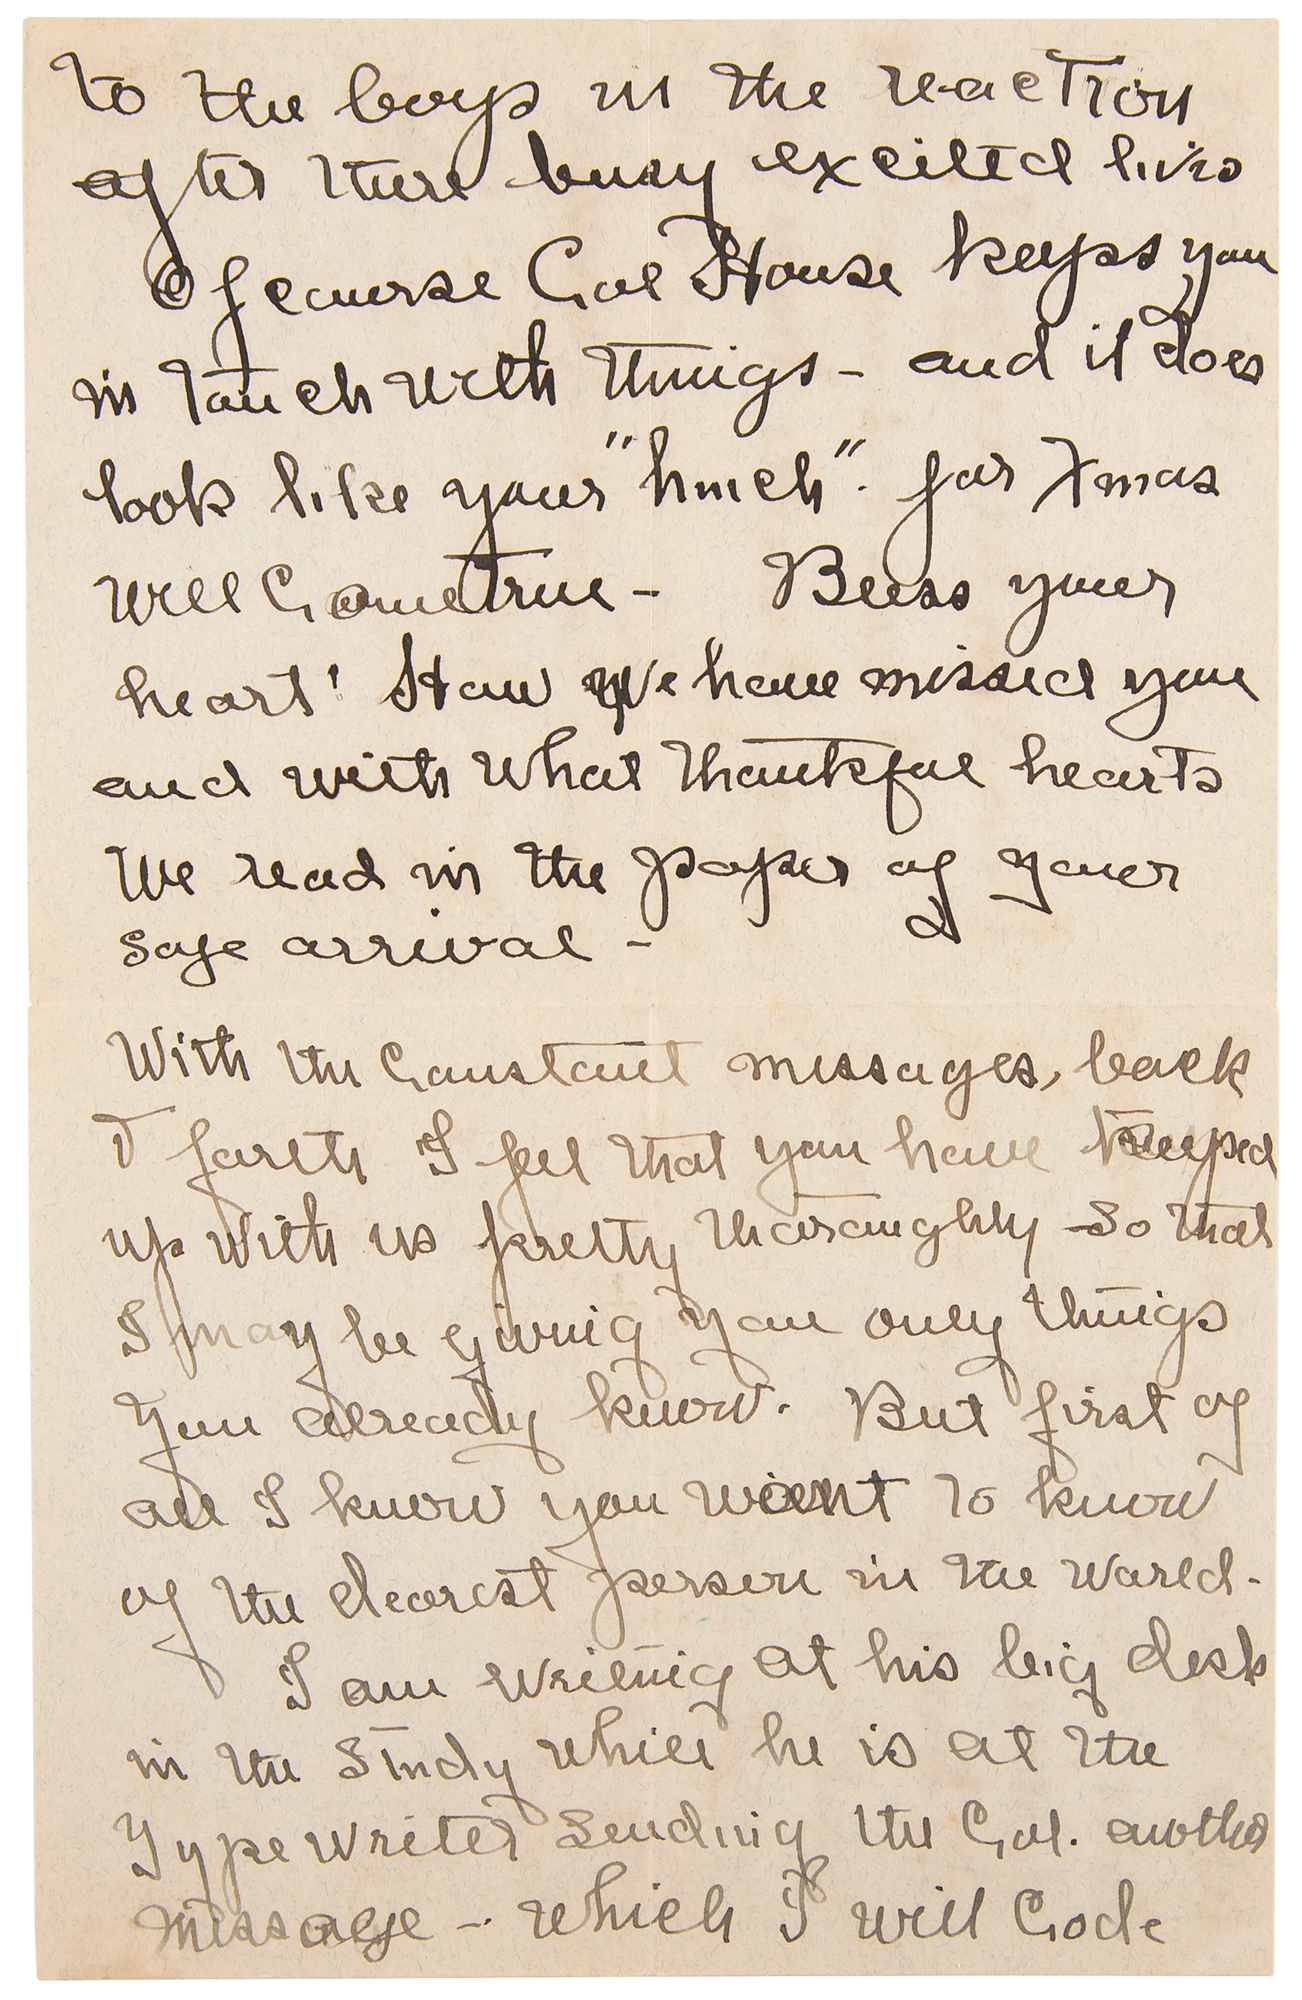 to the boys in the reaction
after there busy excited lives
Of course Col House keeps you
in touch with things - and it does
look like your "hunch". for Xmas
will Come true - Bless your
heart! How We have missed you
and with what thankful hearts
We read in the paper of your
safe arrival -
With the Constant messages, back
& forth I feel that you have keeped
up with us pretty thoroughly - so that
I may be giving you only things
You already know. But first of
all I know you want to know
of the dearest person in the World -
I am writing at his big desk
in the study while he is at the
Type writer sending the Col. another
message - which I will Code